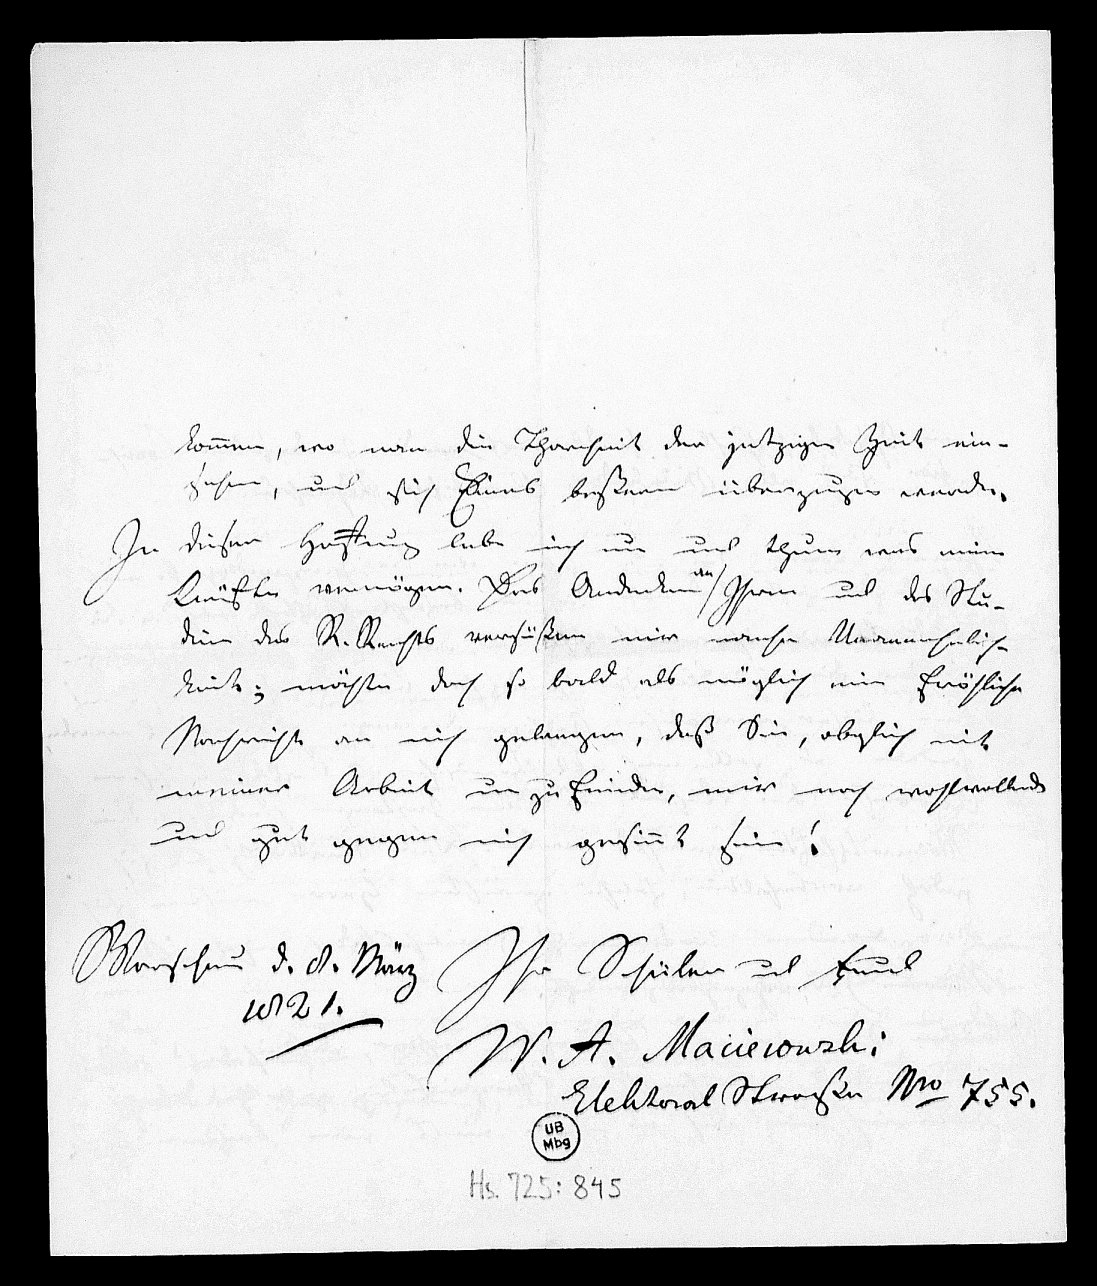 kommen, wo man die Thorheit der jetzigen Zeit ein-
sehen, und sich Eines beßeren überzeugen werde.
In dieser Hoffnung lebe ich nun und thue was meine
Kräfte vermögen. Das Andenken an Ihnen und des Stu-
dium des R. Rechts versüßen mir manche Unannehmlich-
keit; möchte doch so bald als möglich eine fröhliche
Nachricht an mich gelangen, daß Sie, obgleich mit
meiner Arbeit un zu frieden, mir noch wohlwollend
und gut gegen mich gesinnt sein!
Warschau d. 8. März
1821.
Ihr Schüler und Freund
W. A. Maciejowski
Elektoral Straße Nro 755.
UB
Mbg
Hs. 725: 845